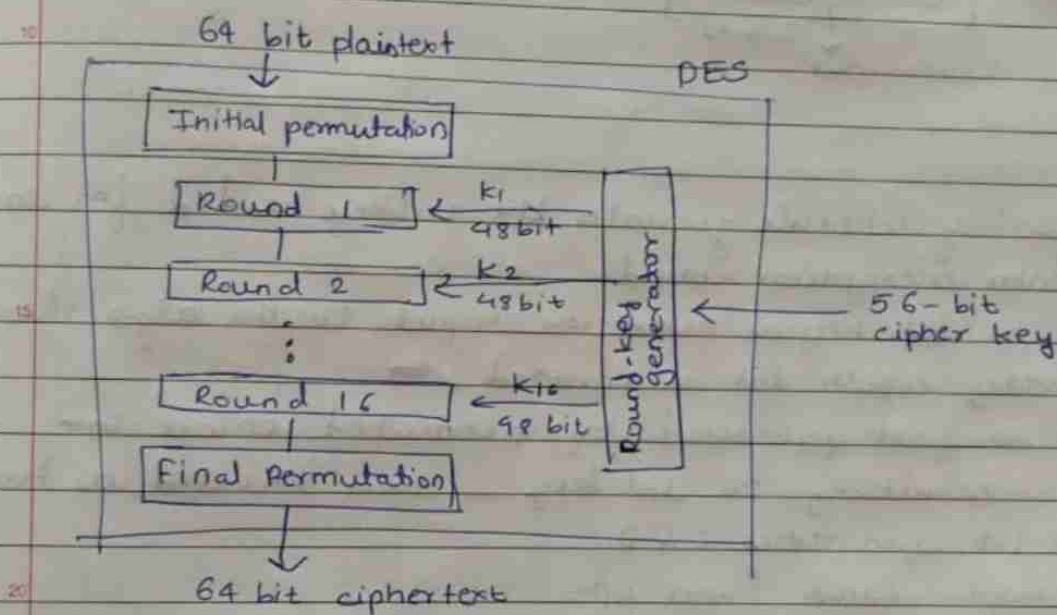 10
64 bit plaintext
DES
Initial permutation
Round 1
K1
48bit
Round 2
K2
48bit
Round-key
generator
15
56-bit
cipher key
:
Round 16
K16
48 bit
Final Permutation
20
64 bit ciphertext